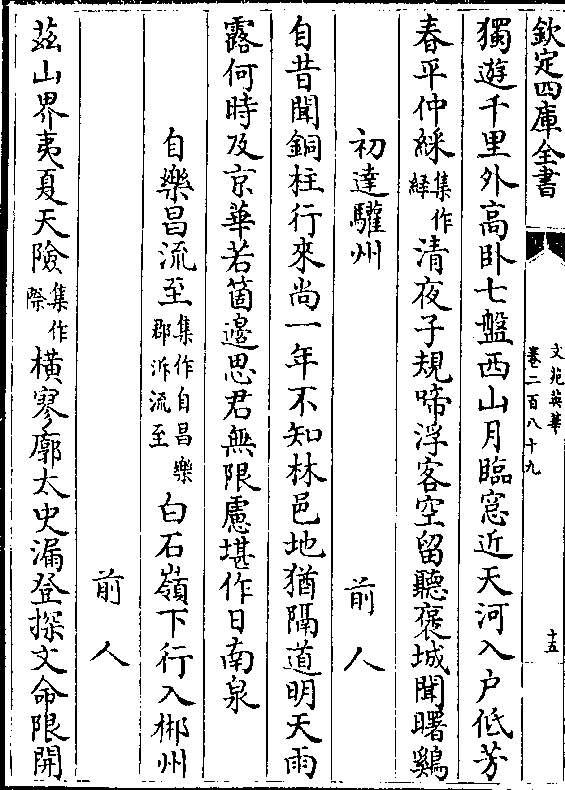 欽定四庫全書
文苑英華
卷二百八十九
十五
獨遊千里外高卧七盤西山月臨窓近天河入戶低芳
春平仲綵集作緑清夜子規啼浮客空留聽褒城聞曙鷄
初達驩州
前人
自昔聞銅柱行來尚一年不知林邑地猶隔道明天雨
露何時及京華若箇邊思君無限慮堪作日南泉
自樂昌流至集作自昌樂郡泝流至白石嶺下行入郴州
前人
茲山界夷夏天險集作際橫寥廓太史漏登探文命限開